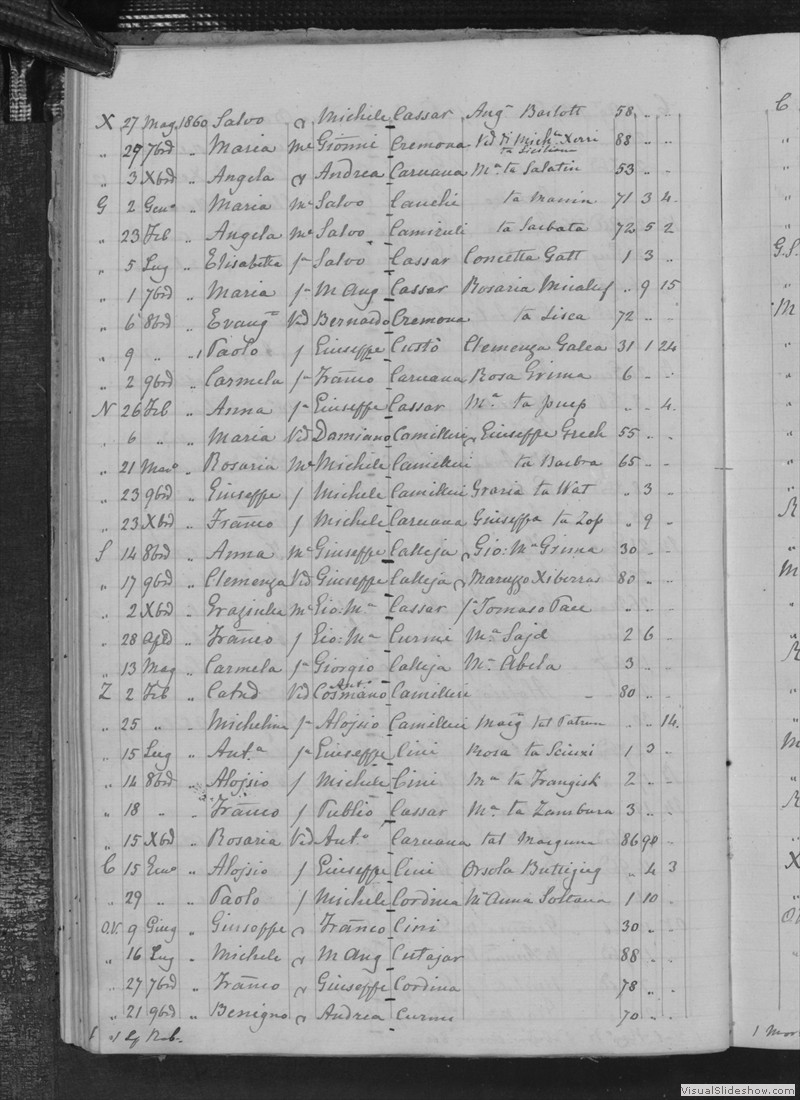 X 27 Mag 1860 Salvo Michele Cassar Ang. Bartott 58 " "
" 29 7br " Maria Me Gionni Cremona Vid Xerri 88 " "
" 3 Xbr " Angela Andrea Caruana Ma ta Salatin 53 " "
G 2 Geno " Maria Me Salvo Cauchi ta Manin 71 3 4
" 23 Feb " Angela Me Salvo Camizuli ta Sabata 72 5 2
" 5 Lug " Elisabetta fa Salvo Cassar Concetta Gatt 1 3 "
" 1 7br " Maria fa M Ang Cassar Rosaria Micalef " 9 15
" 6 8br " Evang Vid Bernardo Cremona ta Lisca 72 " "
" 9 " " Paolo f Giuseppe Custò Clemenza Galea 31 1 24
" 2 9br " Carmela fa Franco Caruana Rosa Grima 6 - -
N 26 Feb " Anna fa Giuseppe Cassar Ma ta " - 4
" 6 " " Maria Vid Damiano Camilleri Giuseppe Grech 55 - -
" 21 " Rosaria Me Michele Camilleri ta Barbra 65 - -
" 23 9br " Giuseppe f Michele Camilleri Grazia ta Wat " 3 -
" 23 Xbr " Franco f Michele Caruana Giuseppa ta Zop " 9 -
S 14 8br " Anna Me Giuseppe Calleja Gio: Ma Grima 30 - -
" 17 9br " Clemenza Vid Giuseppe Calleja Maruzzo Xiberras 80 " "
" 2 Xbr " Me Gio: Ma Cassar f Tomaso Pace " " "
" 28 Apl " Franco f Gio: Ma Curmi Ma Sajd 2 6 -
" 13 Mag " Carmela fa Giorgio Calleja Ma Abela 3 " -
Z 2 Feb " Catnd Vid Cosmano Camilleri - 80 " -
" 25 " - Michelina fa Alojsio Camilleri Marg tal Patrun " " 14
" 15 Lug " Anta fa Giuseppe Cini Rosa ta 1 3 "
" 14 8br " Alojsio f Michele Cini Ma ta Frangisk 2 - "
" 18 " " Franco f Publio Cassar Ma ta Zambara 3 " "
" 15 Xbr " Rosaria Vid Anto Caruana tal 86 9
C 15 Geno " Alojsio f Giuseppe Cini Orsola Buttigieg " 4 3
" 29 " " Paolo f Michele Cordina M Anna Soltana 1 10 -
O.V. 9 Giug " Giuseppe Franco Cini 30 " -
" 16 Lug " Michele M Ang Cutajar 88 " -
" 27 7br " Franco Giuseppe Cordina 78 " -
" 21 9br " Benigno Andrea Curmi 70 " -
VisualSlideshow.com